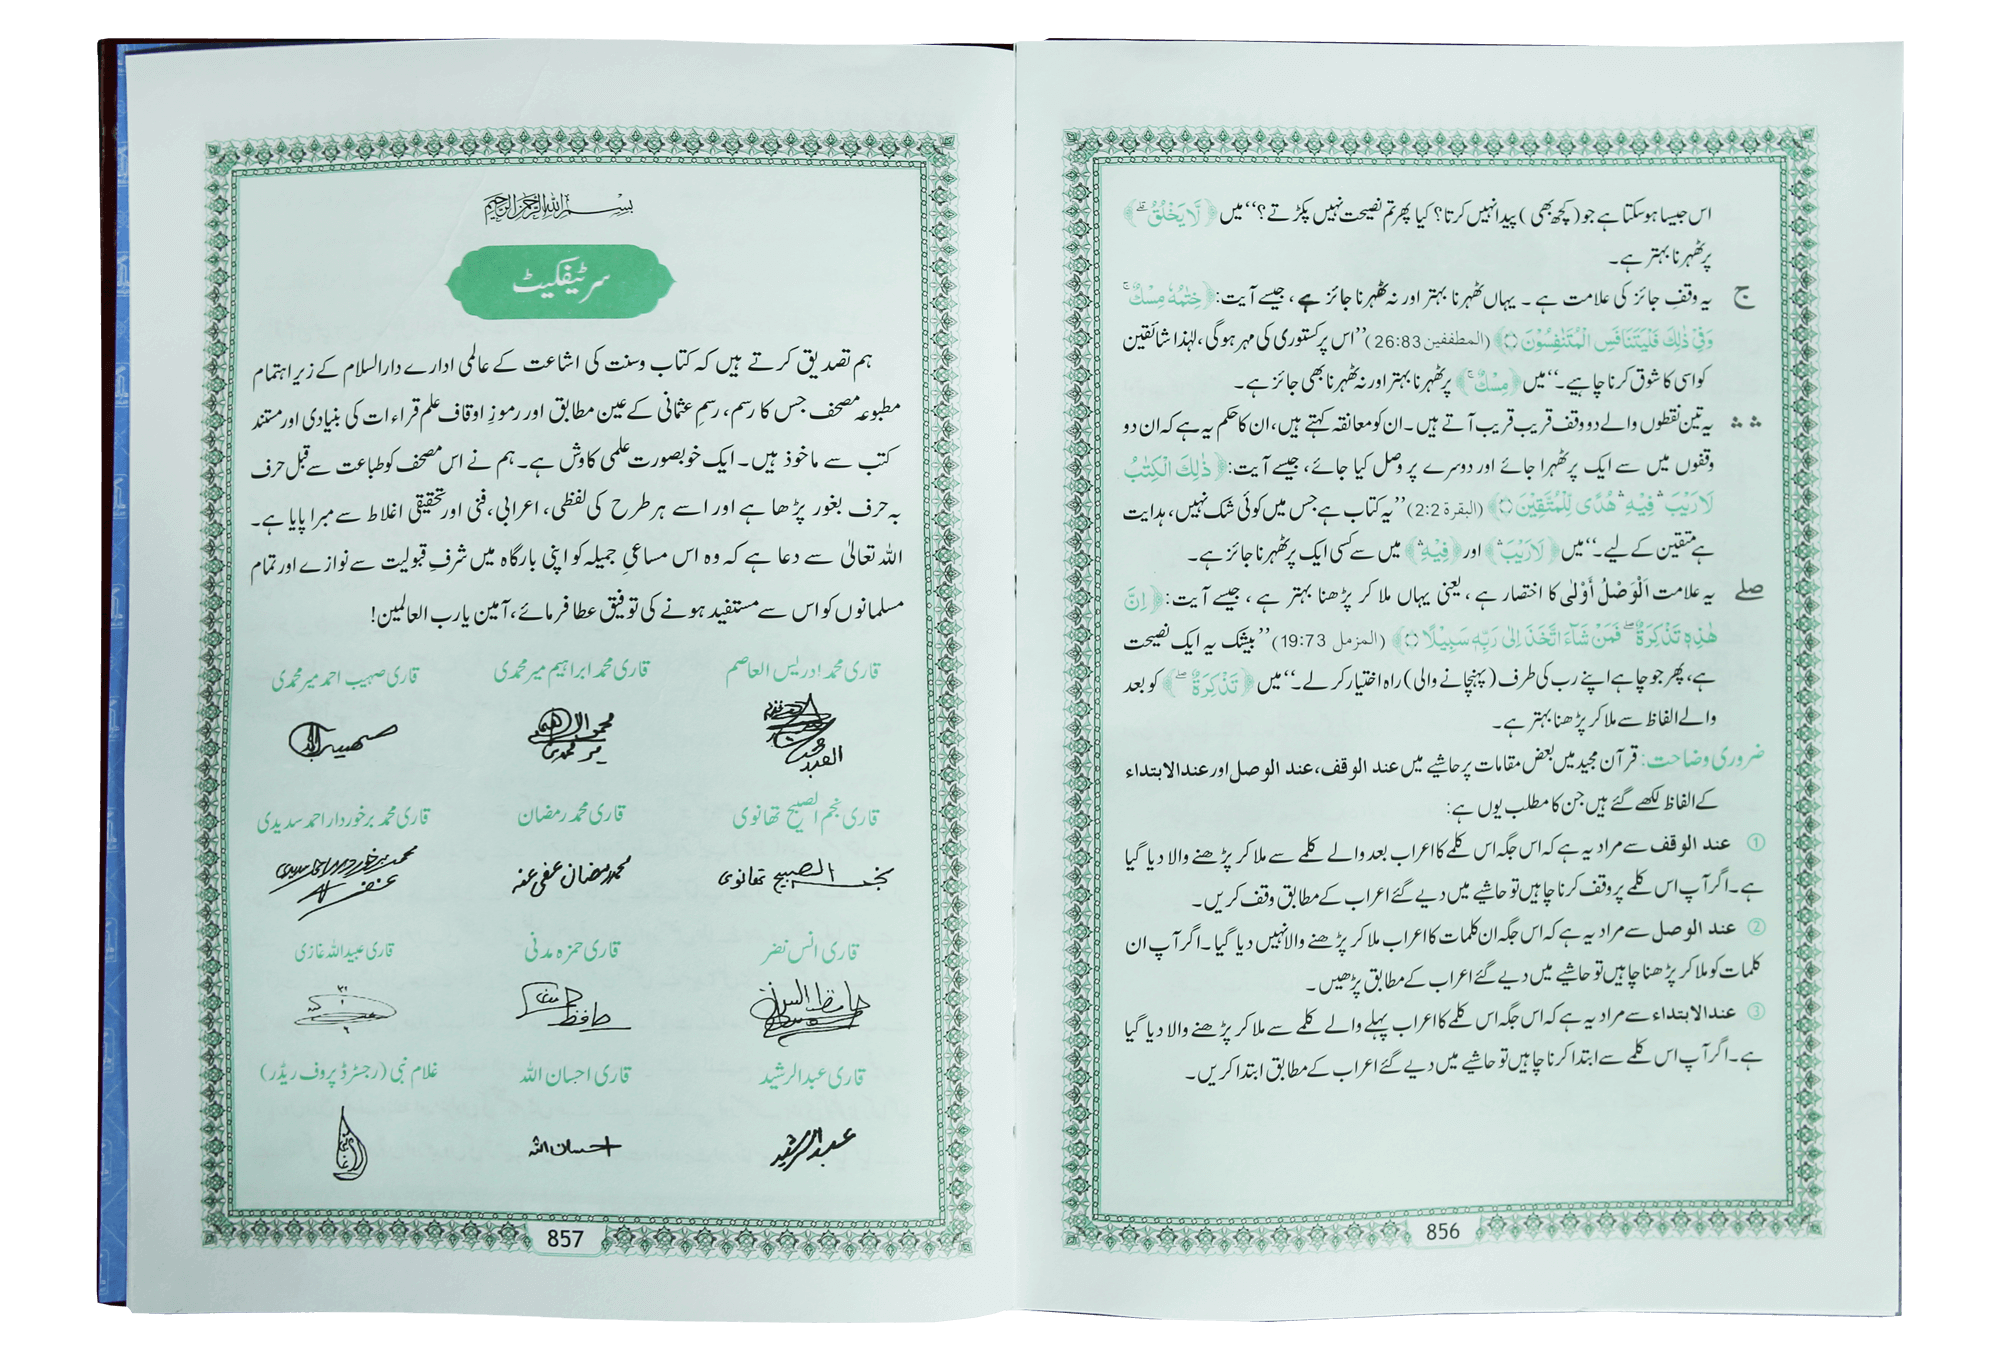 اس جیسا ہوسکتا ہے جو (کچھ بھی) پیدا نہیں کرتا؟ کیا پھر تم نصیحت نہیں پکڑتے؟‘‘ میں ﴿لَّا يَخْلُقُ ؕ﴾
پر ٹھہرنا بہتر ہے۔
ج یہ وقفِ جائز کی علامت ہے ۔ یہاں ٹھہرنا بہتر اور نہ ٹھہرنا جائز ہے ، جیسے آیت: ﴿خِتٰمُهٗ مِسْكٌ ۚ
وَفِيْ ذٰلِكَ فَلْيَتَنَافَسِ الْمُتَنٰفِسُوْنَ ۝﴾ (المطففین 26:83) ’’اس پر کستوری کی مہر ہوگی ، لہٰذا شائقین
کو اسی کا شوق کرنا چاہیے۔‘‘ میں ﴿مِسْكٌ ۚ﴾ پر ٹھہرنا بہتر اور نہ ٹھہرنا بھی جائز ہے۔
∴ ∴ یہ تین نقطوں والے دو وقف قریب قریب آتے ہیں۔ ان کو معانقہ کہتے ہیں، ان کا حکم یہ ہے کہ ان دو
وقفوں میں سے ایک پر ٹھہرا جائے اور دوسرے پر وصل کیا جائے ، جیسے آیت: ﴿ذٰلِكَ الْكِتٰبُ
لَا رَيْبَ ۛ فِيْهِ ۛ هُدًى لِّلْمُتَّقِيْنَ ۝﴾ (البقرة 2:2) ’’یہ کتاب ہے جس میں کوئی شک نہیں، ہدایت
ہے متقین کے لیے۔‘‘ میں ﴿لَا رَيْبَ ۛ﴾ اور ﴿فِيْهِ ۛ﴾ میں سے کسی ایک پر ٹھہرنا جائز ہے۔
صلے یہ علامت اَلْوَصْلُ أَوْلٰی کا اختصار ہے ، یعنی یہاں ملا کر پڑھنا بہتر ہے ، جیسے آیت: ﴿اِنَّ
هٰذِهٖ تَذْكِرَةٌ ۖ فَمَنْ شَآءَ اتَّخَذَ اِلٰى رَبِّهٖ سَبِيْلًا ۝﴾ (المزمل 19:73) ’’بیشک یہ ایک نصیحت
ہے، پھر جو چاہے اپنے رب کی طرف (پہنچانے والی) راہ اختیار کر لے۔‘‘ میں ﴿تَذْكِرَةٌ ۖ﴾ کو بعد
والے الفاظ سے ملا کر پڑھنا بہتر ہے۔
ضروری وضاحت: قرآن مجید میں بعض مقامات پر حاشیے میں عند الوقف، عند الوصل اور عند الابتداء
کے الفاظ لکھے گئے ہیں جن کا مطلب یوں ہے:
① عند الوقف سے مراد یہ ہے کہ اس جگہ اس کلمے کا اعراب بعد والے کلمے سے ملا کر پڑھنے والا دیا گیا
ہے۔ اگر آپ اس کلمے پر وقف کرنا چاہیں تو حاشیے میں دیے گئے اعراب کے مطابق وقف کریں۔
② عند الوصل سے مراد یہ ہے کہ اس جگہ ان کلمات کا اعراب ملا کر پڑھنے والا نہیں دیا گیا۔ اگر آپ ان
کلمات کو ملا کر پڑھنا چاہیں تو حاشیے میں دیے گئے اعراب کے مطابق پڑھیں۔
③ عند الابتداء سے مراد یہ ہے کہ اس جگہ اس کلمے کا اعراب پہلے والے کلمے سے ملا کر پڑھنے والا دیا گیا
ہے۔ اگر آپ اس کلمے سے ابتدا کرنا چاہیں تو حاشیے میں دیے گئے اعراب کے مطابق ابتدا کریں۔
856
بسم اللہ الرحمن الرحیم
سرٹیفکیٹ
ہم تصدیق کرتے ہیں کہ کتاب وسنت کی اشاعت کے عالمی ادارے دارالسلام کے زیر اہتمام
مطبوعہ مصحف جس کا رسم، رسمِ عثمانی کے عین مطابق اور رموزِ اوقاف علم قراءات کی بنیادی اور مستند
کتب سے ماخوذ ہیں۔ ایک خوبصورت علمی کاوش ہے۔ ہم نے اس مصحف کو طباعت سے قبل حرف
بہ حرف بغور پڑھا ہے اور اسے ہر طرح کی لفظی، اعرابی، فنی اور تحقیقی اغلاط سے مبرا پایا ہے۔
اللہ تعالیٰ سے دعا ہے کہ وہ اس مساعیِ جمیلہ کو اپنی بارگاہ میں شرفِ قبولیت سے نوازے اور تمام
مسلمانوں کو اس سے مستفید ہونے کی توفیق عطا فرمائے، آمین یارب العالمین!
قاری محمد ادریس العاصم قاری محمد ابراہیم میر محمدی قاری صہیب احمد میر محمدی
محمد ابراہیم
میر محمدی
قاری نجم الصبیح تھانوی قاری محمد رمضان قاری محمد برخوردار احمد سدیدی
نجم الصبیح تھانوی محمد رمضان عفی عنہ محمد برخوردار احمد سدیدی
قاری انس نضر قاری حمزہ مدنی قاری عبید اللہ غازی
قاری عبدالرشید قاری احسان اللہ غلام نبی (رجسٹرڈ پروف ریڈر)
عبدالرشید احسان اللہ
857